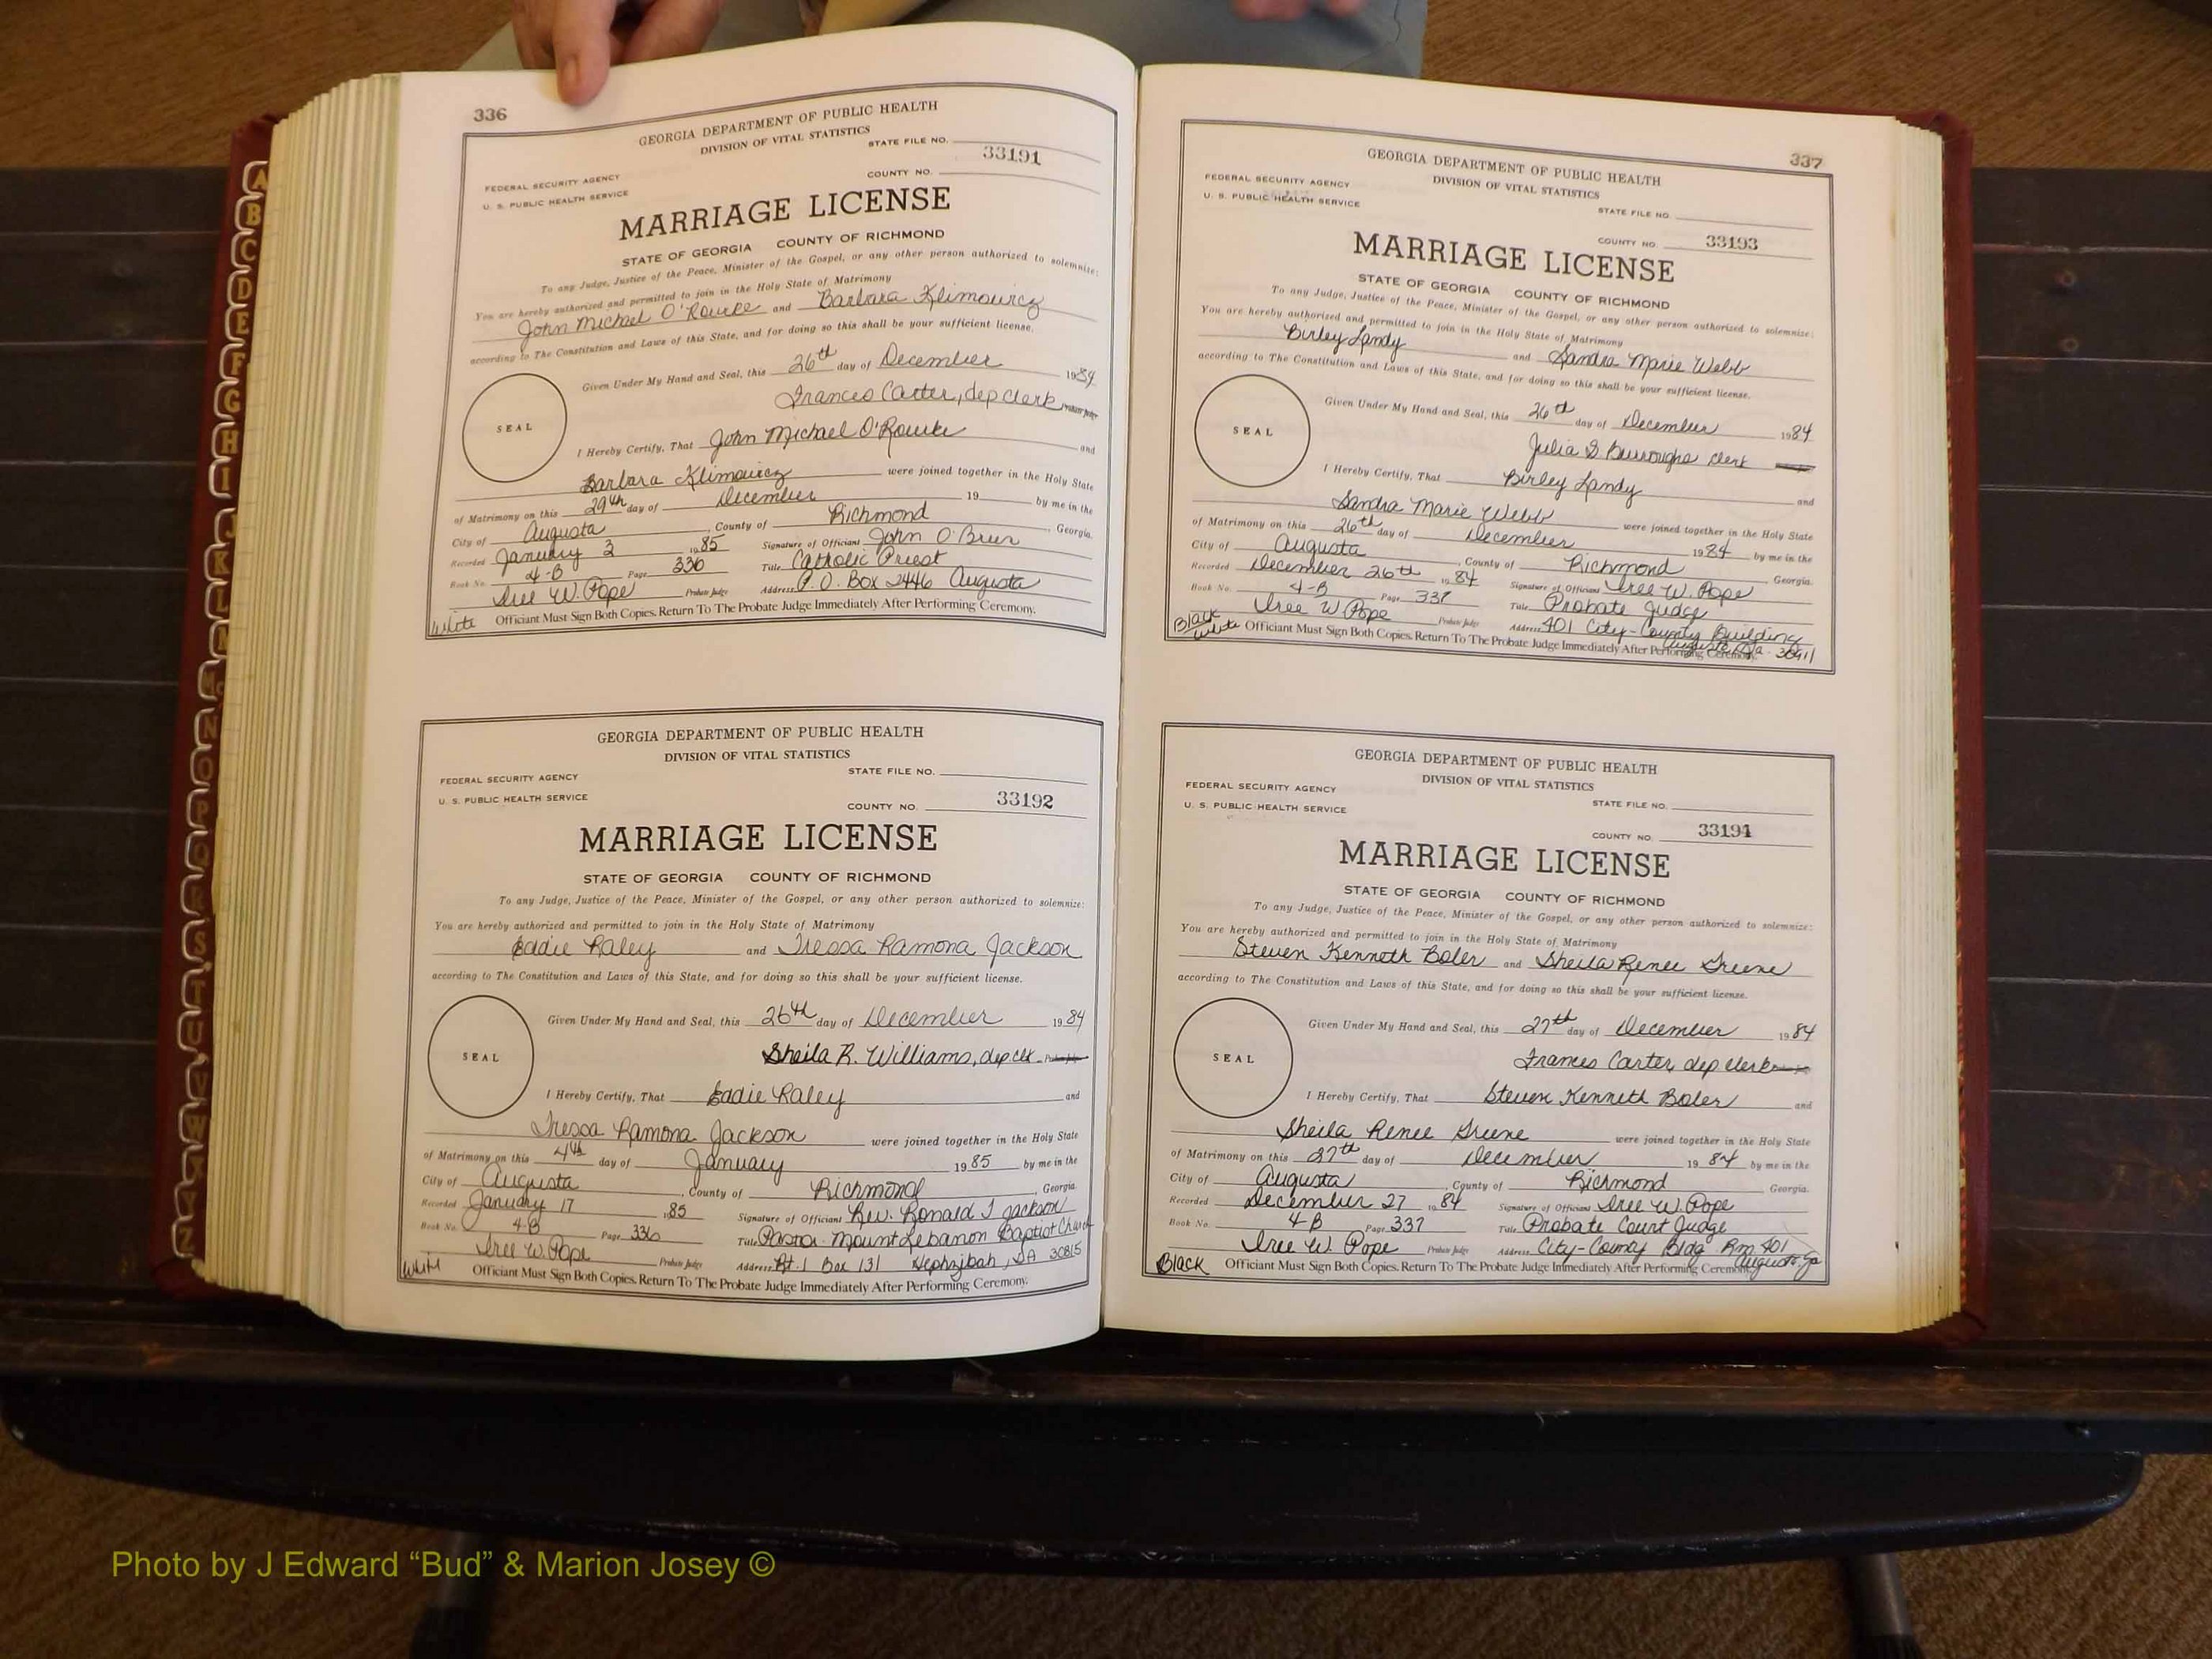 336
GEORGIA DEPARTMENT OF PUBLIC HEALTH
DIVISION OF VITAL STATISTICS
STATE FILE NO. 33191
FEDERAL SECURITY AGENCY
U. S. PUBLIC HEALTH SERVICE
COUNTY NO.
MARRIAGE LICENSE
STATE OF GEORGIA COUNTY OF RICHMOND
To any Judge, Justice of the Peace, Minister of the Gospel, or any other person authorized to solemnize:
You are hereby authorized and permitted to join in the Holy State of Matrimony
John Michael O'Rourke and Barbara Klimowicz
according to The Constitution and Laws of this State, and for doing so this shall be your sufficient license.
Given Under My Hand and Seal, this 26th day of December 1984
Frances Carter, dep clerk Probate Judge
SEAL
I Hereby Certify, That John Michael O'Rourke and
Barbara Klimowicz were joined together in the Holy State
of Matrimony on this 29th day of December 19 by me in the
City of Augusta, County of Richmond, Georgia.
Recorded January 3 1985 Signature of Officiant John O'Brien
Book No. 4-B Page 336 Title Catholic Priest
Iree W. Pope Probate Judge Address P.O. Box 2446 Augusta
White Officiant Must Sign Both Copies. Return To The Probate Judge Immediately After Performing Ceremony.
GEORGIA DEPARTMENT OF PUBLIC HEALTH
DIVISION OF VITAL STATISTICS
FEDERAL SECURITY AGENCY
STATE FILE NO.
U. S. PUBLIC HEALTH SERVICE
COUNTY NO. 33192
MARRIAGE LICENSE
STATE OF GEORGIA COUNTY OF RICHMOND
To any Judge, Justice of the Peace, Minister of the Gospel, or any other person authorized to solemnize:
You are hereby authorized and permitted to join in the Holy State of Matrimony
Eadie Raley and Tressa Ramona Jackson
according to The Constitution and Laws of this State, and for doing so this shall be your sufficient license.
Given Under My Hand and Seal, this 26th day of December 1984
Sheila R. Williams, dep clk Probate Judge
SEAL
I Hereby Certify, That Eadie Raley and
Tressa Ramona Jackson were joined together in the Holy State
of Matrimony on this 4th day of January 1985 by me in the
City of Augusta, County of Richmond, Georgia.
Recorded January 17 1985 Signature of Officiant Rev. Ronald J Jackson
Book No. 4-B Page 336 Title Pastor Mount Lebanon Baptist Church
Iree W. Pope Probate Judge Address Rt. 1 Box 131 Hephzibah, GA 30815
White Officiant Must Sign Both Copies. Return To The Probate Judge Immediately After Performing Ceremony.
337
GEORGIA DEPARTMENT OF PUBLIC HEALTH
DIVISION OF VITAL STATISTICS
FEDERAL SECURITY AGENCY
U. S. PUBLIC HEALTH SERVICE
STATE FILE NO.
COUNTY NO. 33193
MARRIAGE LICENSE
STATE OF GEORGIA COUNTY OF RICHMOND
To any Judge, Justice of the Peace, Minister of the Gospel, or any other person authorized to solemnize:
You are hereby authorized and permitted to join in the Holy State of Matrimony
Birley Landy and Sandra Marie Webb
according to The Constitution and Laws of this State, and for doing so this shall be your sufficient license.
Given Under My Hand and Seal, this 26th day of December 1984
Julia S Burroughs clerk
SEAL
I Hereby Certify, That Birley Landy and
Sandra Marie Webb were joined together in the Holy State
of Matrimony on this 26th day of December 1984 by me in the
City of Augusta, County of Richmond, Georgia.
Recorded December 26th 1984 Signature of Officiant Iree W. Pope
Book No. 4-B Page 337 Title Probate Judge
Iree W Pope Probate Judge Address 401 City-County Building
Augusta, Ga. 30911
Black White Officiant Must Sign Both Copies. Return To The Probate Judge Immediately After Performing Ceremony.
GEORGIA DEPARTMENT OF PUBLIC HEALTH
DIVISION OF VITAL STATISTICS
FEDERAL SECURITY AGENCY
U. S. PUBLIC HEALTH SERVICE
STATE FILE NO.
COUNTY NO. 33194
MARRIAGE LICENSE
STATE OF GEORGIA COUNTY OF RICHMOND
To any Judge, Justice of the Peace, Minister of the Gospel, or any other person authorized to solemnize:
You are hereby authorized and permitted to join in the Holy State of Matrimony
Steven Kenneth Boler and Sheila Renee Greene
according to The Constitution and Laws of this State, and for doing so this shall be your sufficient license.
Given Under My Hand and Seal, this 27th day of December 1984
Frances Carter, dep clerk
SEAL
I Hereby Certify, That Steven Kenneth Boler and
Sheila Renee Greene were joined together in the Holy State
of Matrimony on this 27th day of December 1984 by me in the
City of Augusta, County of Richmond, Georgia.
Recorded December 27 1984 Signature of Officiant Iree W. Pope
Book No. 4 B Page 337 Title Probate Court Judge
Iree W. Pope Probate Judge Address City-County Bldg. Rm 401
Augusta, Ga
Black Officiant Must Sign Both Copies. Return To The Probate Judge Immediately After Performing Ceremony.
A
B
C
D
E
F
G
H
I
J
K
L
M
Mc
N
O
P
Q
R
S
T
U
V
W
Y
Z
Photo by J Edward “Bud” & Marion Josey ©